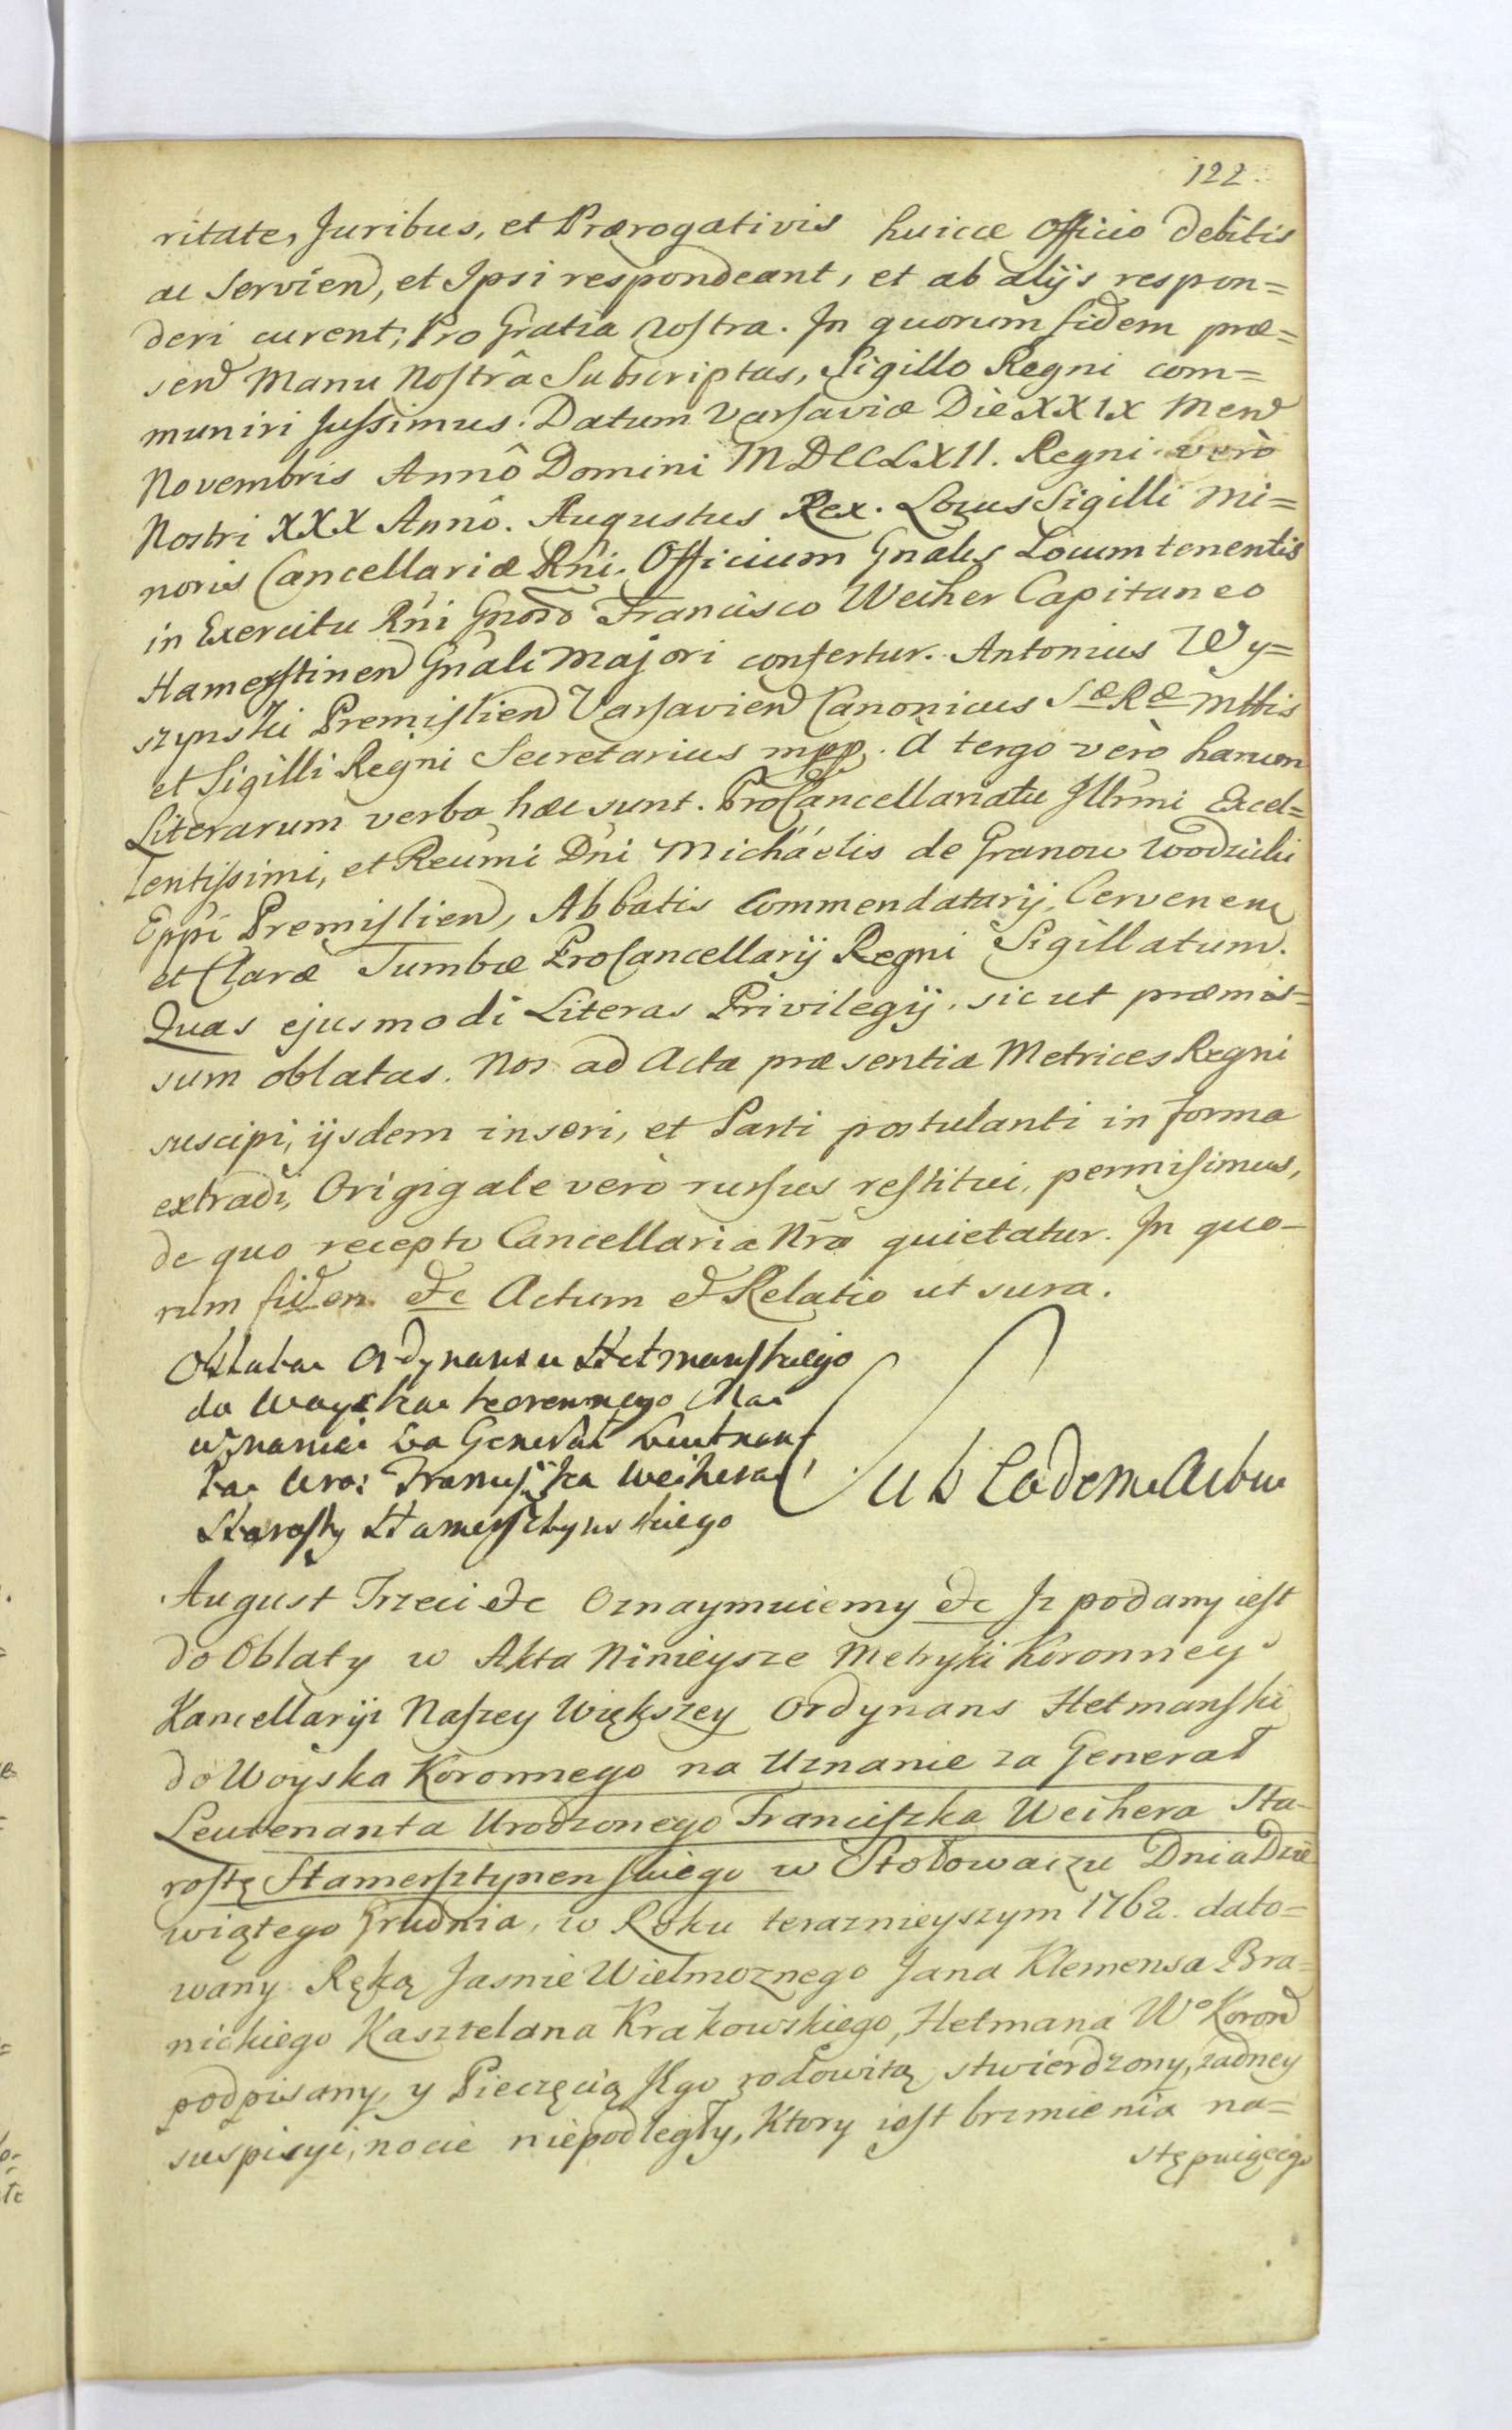 122.
ritate, Juribus, et Prærogativis huicce Officio debitis
ac Servien, et Ipsi respondeant, et ab alijs respon=
deri curent, Pro Gratia Nostra. In quorum fidem præ=
sen Manu Nostrâ Subscriptas, Sigillo Regni com=
muniri jussimus. Datum Varsaviæ Die XXIX Men
Novembris Annô Domini MDCCLXII. Regni verò
Nostri XXX Annô. Augustus Rex. Locus Sigilli Mi=
noris Cancellariæ Rñi. Officium Gñalis Locum tenentis
in Exercitu Rñi Gnoso Francisco Weiher Capitaneo
Hamerstinen Gñali Majori confertur. Antonius Wy=
szynski Premislien Varsavien Canonicus SæRæ Mttis
et Sigilli Regni Secretarius mpp. A tergo verò harum
Literarum verba hæc sunt. ProCancellariatu Illrmi Excel=
lentissimi, et Reumi Dñi Michaelis de Granow Wodzicki
Eppi Premislien, Abbatis Commendatarij, Cervenen
et Claræ Tumbæ ProCancellarij Regni Sigillatum.
Quas ejusmodi Literas Privilegij, sicut præmis=
sum oblatas. Nos ad Acta præsentia Metrices Regni
suscipi, ijsdem inseri, et Parti postulanti in forma
extradi, Origigale verò rursus restitui, permisimus,
de quo recepto Cancellaria Nrã quietatur. In quo=
rum fidem etc Actum et Relatio ut sura.
Oblata Ordynansu Hetmanskiego
do Woyska koronnego Na
uznanie Za Generał Leutnan
ta Uro: Franciszka Weihera
Starosty Hamersztynskiego
Sub Eadem Actu
August Trzeci etc Oznaymuiemy etc Iz podany iest
do Oblaty w Akta Ninieysze Metryki Koronney
Kancellaryi Naszey Większey Ordynans Hetmanski
do Woyska Koronnego na Uznanie za Generał
Leutenanta Urodzonego Franciszka Weihera Sta=
rostę Hamersztynenskiego w Stołowaczu Dnia Dzie
wiątego Grudnia, w Roku teraznieyszym 1762. dato=
wany Ręką Jasnie Wielmoznego Jana Klemensa Bra=
nickiego Kasztelana Krakowskiego, Hetmana Wo Koron
podpisany, y Pieczęcią Jgo rodowitą stwierdzony, zadney
suspicyi, nocie niepodległy, Ktory iest brzmienia na=
stępuiącego